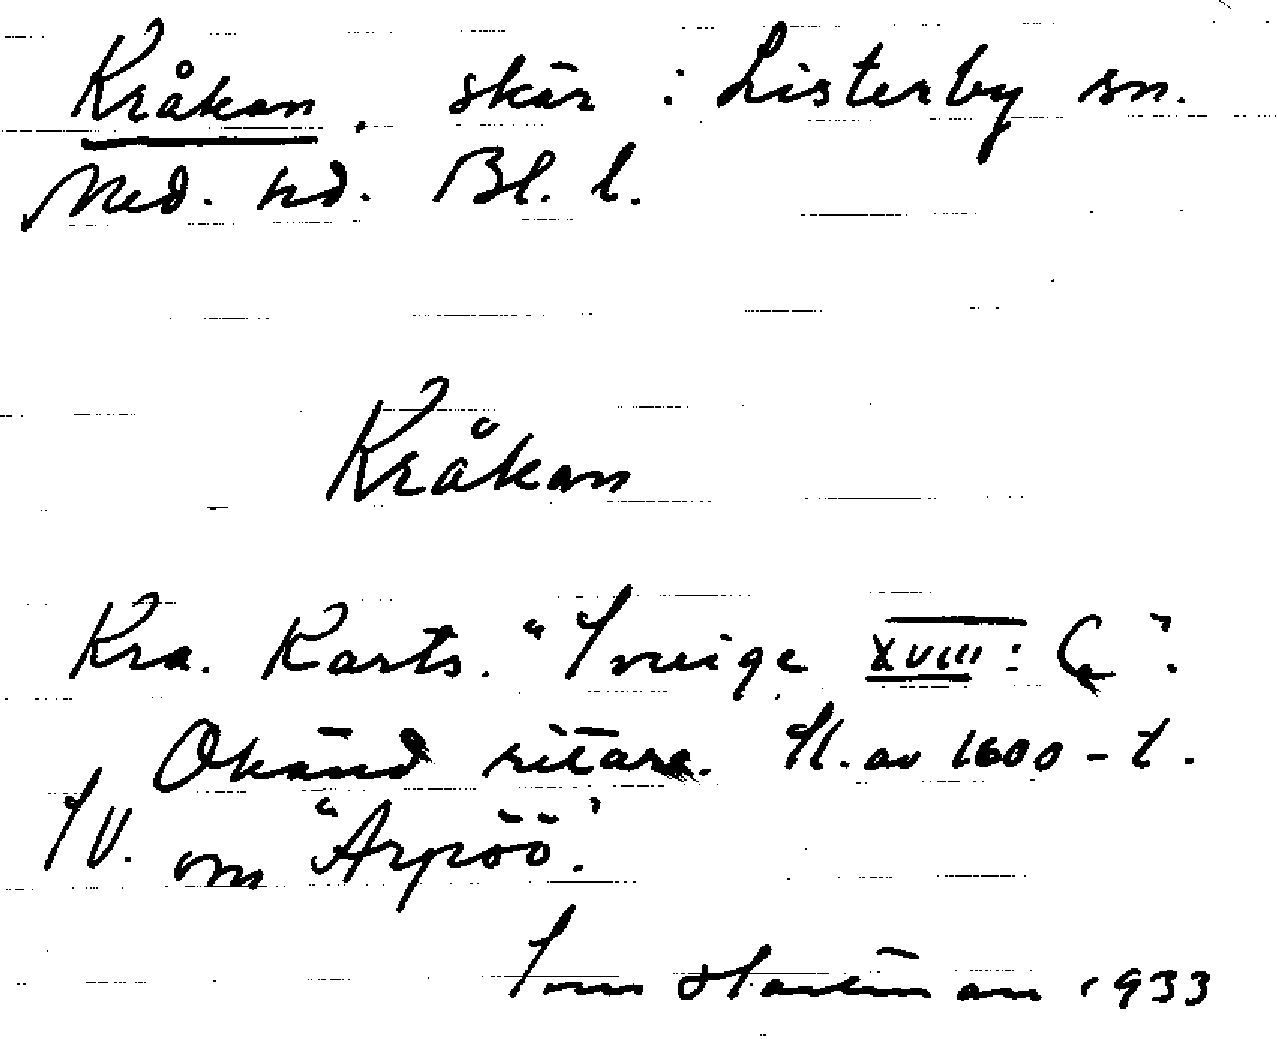 Kråkan, skär i Listerby sn.
Med. hd. Bl. l.
Kråkan
Kra. Karts. "Sverige XVIII: C".
Okänd ritare. Sl. av 1600-t.
SV. om "Arpöö".
Sven 1933